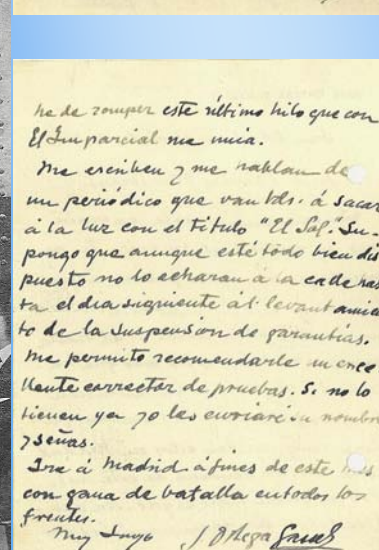 he de romper este último hilo que con
El Imparcial me unía.
Me escriben y me hablan de
un periódico que van Vds. á sacar
á la luz con el título "El Sol". Su-
pongo que aunque esté todo bien dis
puesto no lo echaran á la calle has
ta el dia siguiente al levantamien
to de la suspensión de garantías.
Me permito recomendarle un exce
lente corrector de pruebas. Si no lo
tienen ya yo les enviaré su nombre
y señas.
Iré á Madrid á fines de este mes
con gana de batalla en todos los
frentes.
Muy suyo J Ortega Gasset